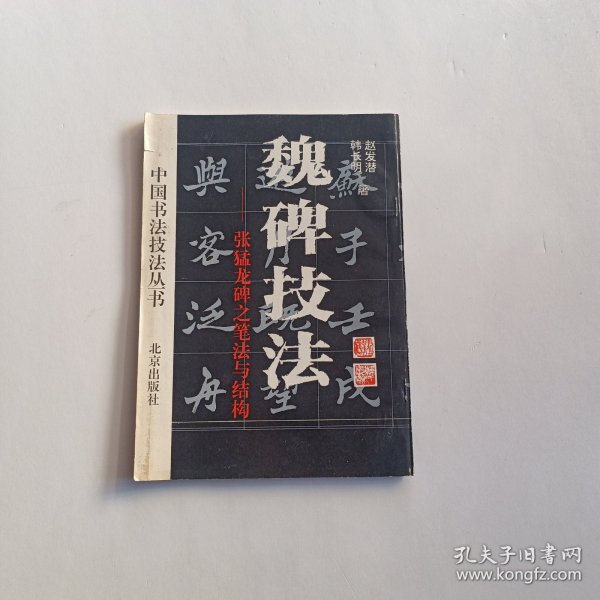 魏碑技法
——张猛龙碑之笔法与结构
赵发潜
韩长明
著
中国书法技法丛书
北京出版社
蘇子壬戌
既望
與客泛舟
孔夫子旧书网
www.kongfz.com